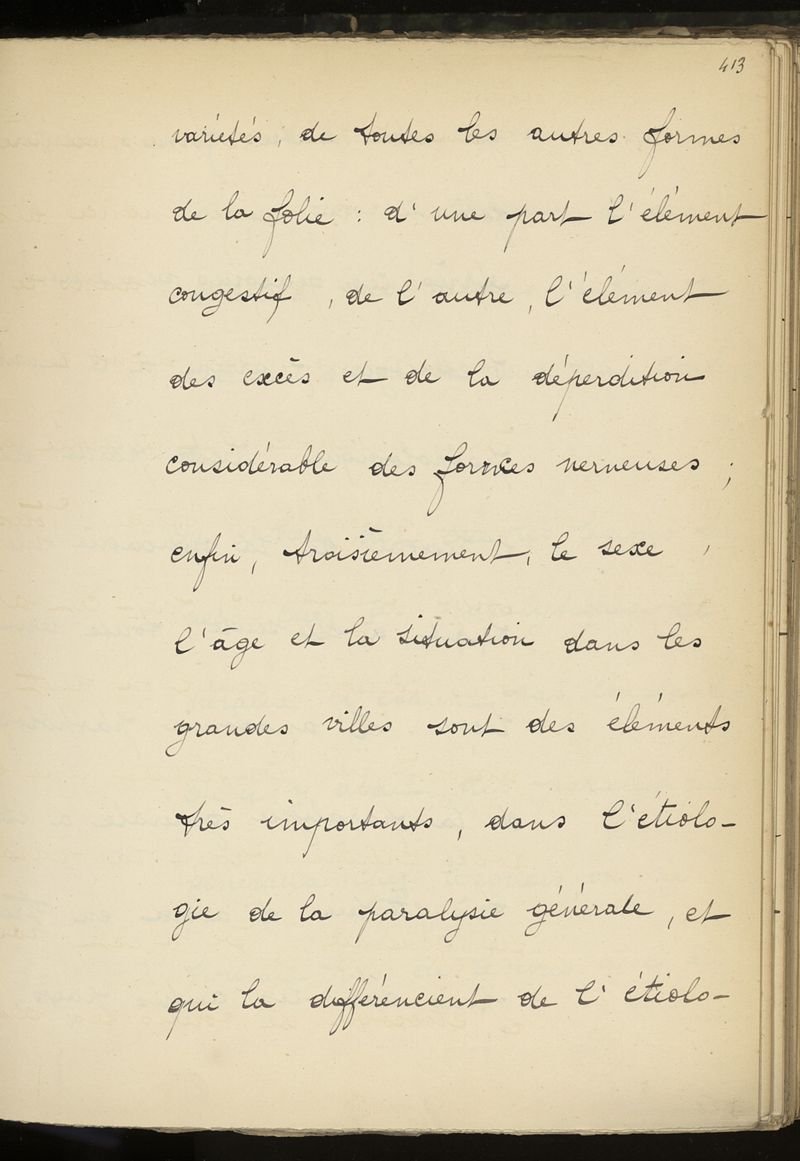 413
variétés, de toutes les autres formes
de la folie : d'une part l'élément
congestif, de l'autre, l'élément
des excès et de la déperdition
considérable des forces nerveuses ;
enfin, troisièmement, le sexe,
l'âge et la situation dans les
grandes villes sont des éléments
très importants, dans l'étiolo-
gie de la paralysie générale, et
qui la différencient de l'étiolo-